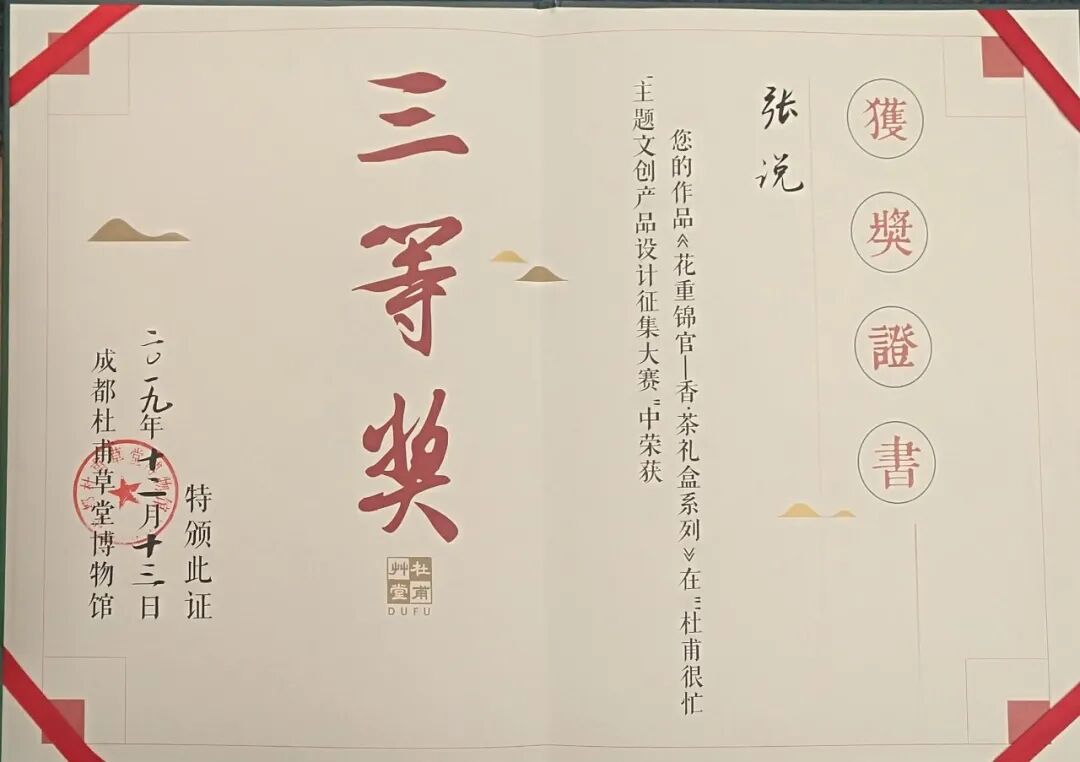 獲獎證書
张说
您的作品《花重锦官—香·茶礼盒系列》在"杜甫很忙
"主题文创产品设计征集大赛"中荣获
三等奖
杜甫
艸堂
DUFU
特颁此证
二〇一九年十二月十三日
成都杜甫草堂博物馆